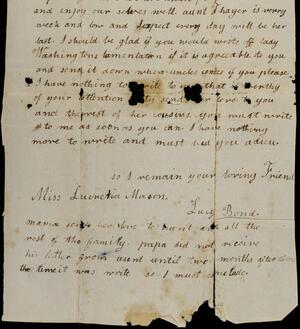 and enjoy our selves well. aunt Thayer is very
week and low and expect every day will be her
last. I should be glad if you would wrote off lady
Washingtons lamentation if it is agreable to you
and send it down when uncle comes if you please.
I have nothing to write to you that is worthy
of your attention love to you
and the rest of her cousins you must write
to me as soon as you can I have nothing
more to write and must bid you adieu.
so I remain your loving Friend
Miss Lucretia Mason.
Lucy Bond.
mama sends her love to aunt and all the
rest of the family. papa did not receive
his letter from aunt until two months after
the time it was write so I must conclude.